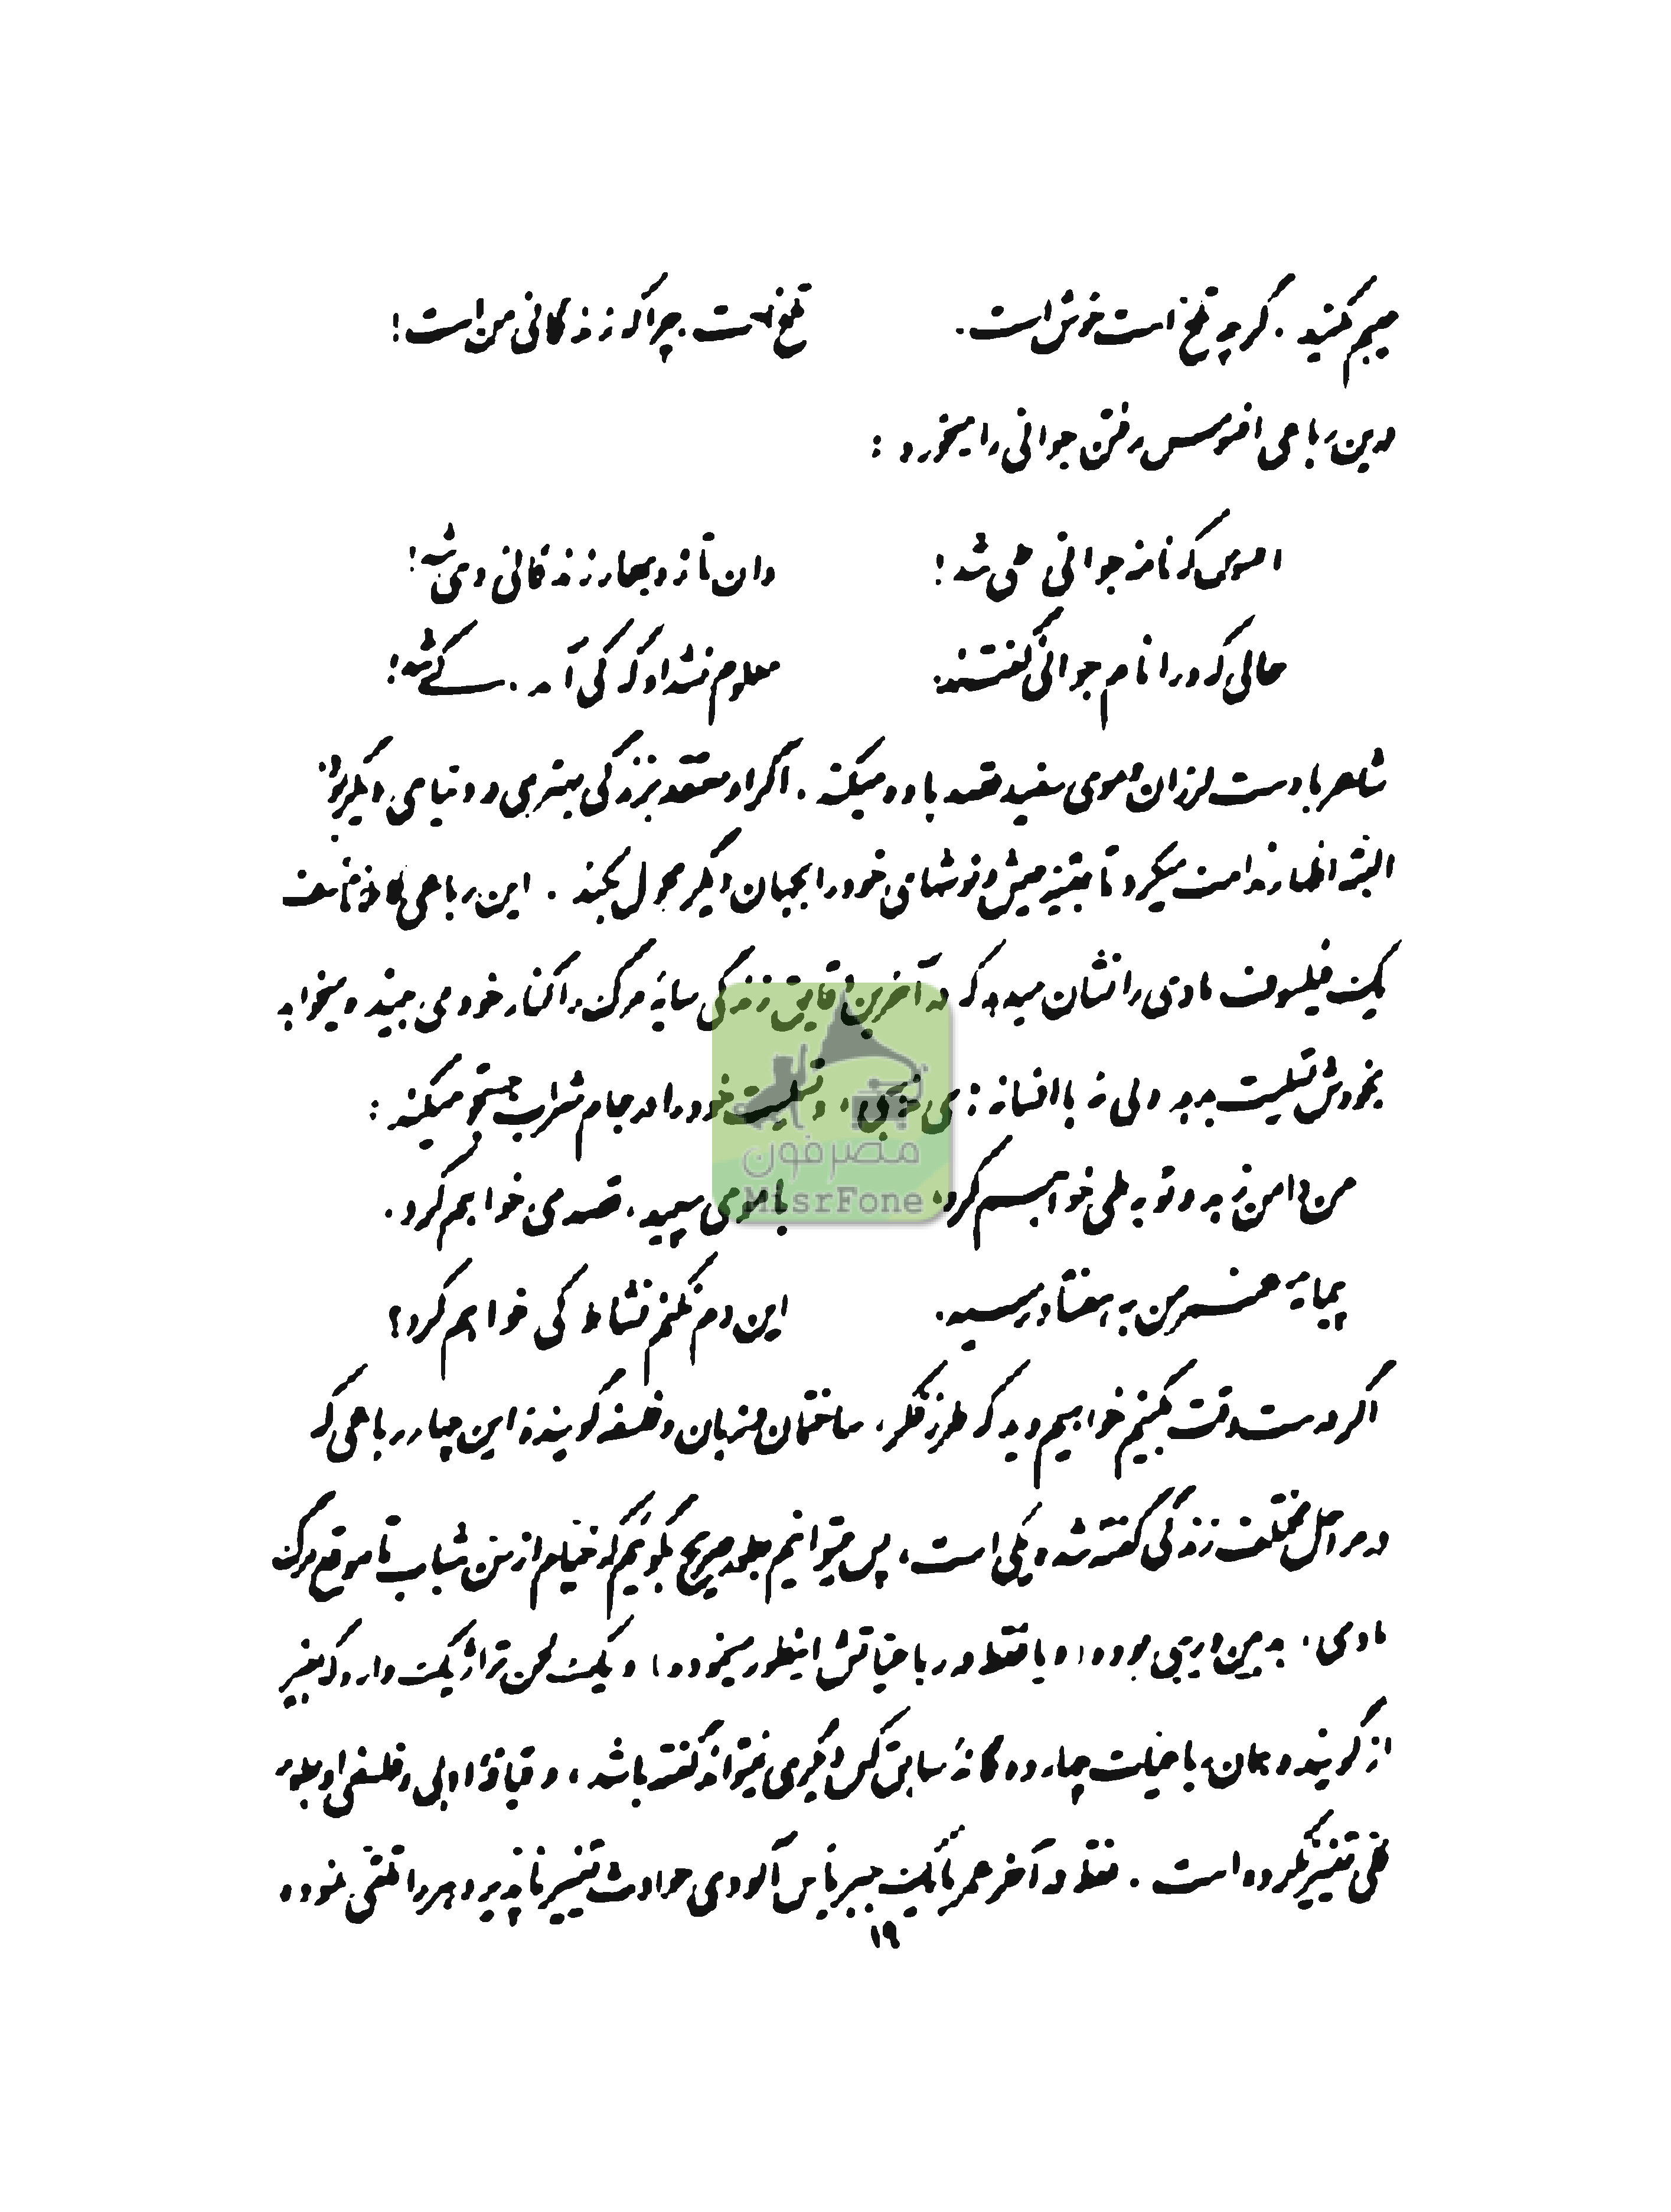 عیبم مکنید. گرچه تلخ است خوش است. تلخ است، چرا که زندگانی من است!
درین رباعی افسوس رفتن جوانی را میخورد:
افسوس که نامه جوانی طی شد! وان تازه بهار زندگانی دی شد!
حالی که ورا نام جوانی گفتند، معلوم نشد او که کی آمد. کے شد!
شاعر با دست لرزان و موی سفید قصد باده میکند. اگر او معتقد بزندگی بهتری در دنیای دیگر نبود
البته اظهار ندامت میکرد تا بقیه عیش و نوشهای خود را بجهان دیگر محول بکند. این رباعی کاملا تأسف
یک فیلسوف مادی را نشان میدهد که در آخرین دقایق زندگی سایهٔ مرگ را کنار خود می بیند و میخواهد
بخودش تسلیت بدهد ولی نه با افسانه های مذهبی، و تسلیت خود را در جام شراب جستجو میکند:
من دامن زهد و توبه طی خواهم کرد، با موی سپید، قصد می خواهم کرد.
پیمانه عمر من به هفتاد رسید. این دم نکنم نشاط کی خواهم کرد؟
اگر درست دقت بکنیم خواهیم دید که طرز فکر، ساختمان و زبان و فلسفه گویندهٔ این چهار رباعی که
در مراحل مختلف زندگی گفته شده یکی است، پس میتوانیم بطور صریح بگوئیم که خیام از سن شباب تا موقع مرگ
مادی، بدبین و ریبی بوده، (و یا فقط در رباعیاتش اینطور مینموده) و یک لحن تراژیک دارد که بغیر
از گوینده همان رباعیات چهارده گانهٔ سابق کس دیگری نمیتواند گفته باشد، و قیافهٔ ادبی و فلسفی او بطور
کلی تغییر نکرده است. فقط در آخر عمر با یک جبر یأس آلودی حوادث تغییر ناپذیر دهر را تلقی نموده
۱۹
مصرفون
MisrFone